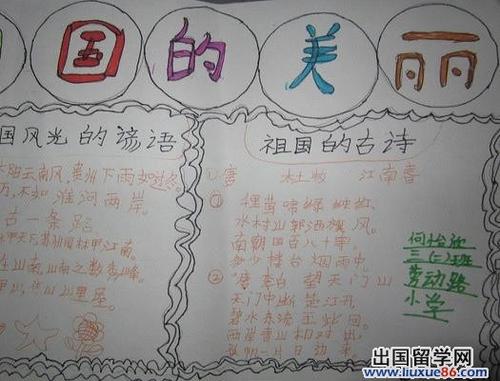 国的美丽
国风光的谚语
云南风，贵州下雨如过冬。
万，不如淮河两岸。
古一条路
甲天下，苏州园林甲江南。
祖国的古诗
唐 杜牧 江南春
① 莺啼绿映红，
水村山郭酒旗风。
南朝四百八十寺，
多少楼台烟雨中。
② 唐李白 望天门山
天门中断楚江开
碧水东流至此回。
两岸青山相对出
一片日边来
三（二）班
劳动路
小学
出国留学网
www.liuxue86.com